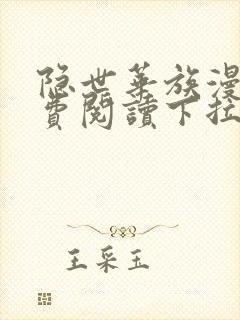 隐世华族漫
费閱讀下拉
王采玉